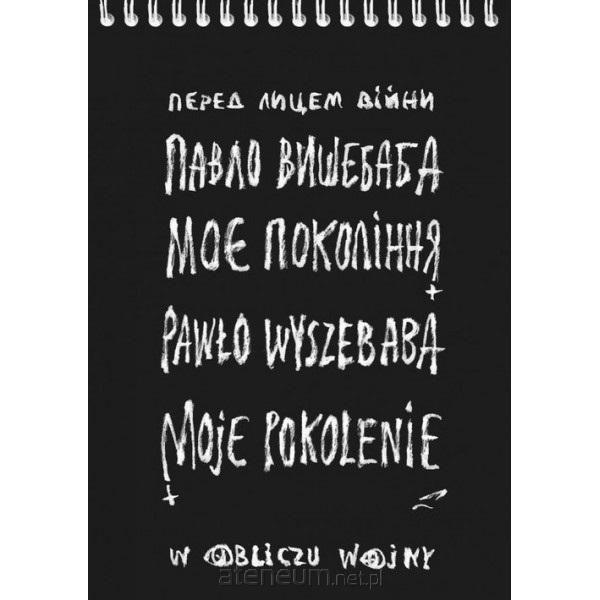 ПЕРЕД ЛИЦЕМ ВІЙНИ
ПАВЛО ВИШЕБАБА
МОЄ ПОКОЛІННЯ
PAWŁO WYSZEBABA
MOJE POKOLENIE
W OBLICZU WOJNY
ateneum.net.pl